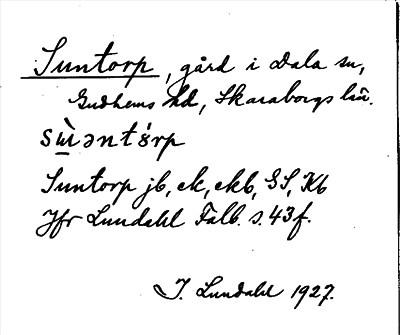 Suntorp, gård i Dala sn,
Gudhems hd, Skaraborgs län.
Suntorp jb, ek, ekb, GS, Kb
Jfr Lundahl Falb. s. 43 f.
I. Lundahl 1927.